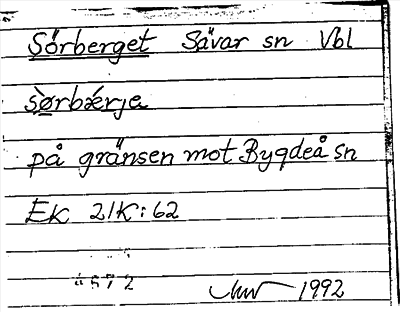 Sörberget Sävar sn Vbl
sø̀rbǽrje
på gränsen mot Bygdeå sn
Ek 21K:62
1992